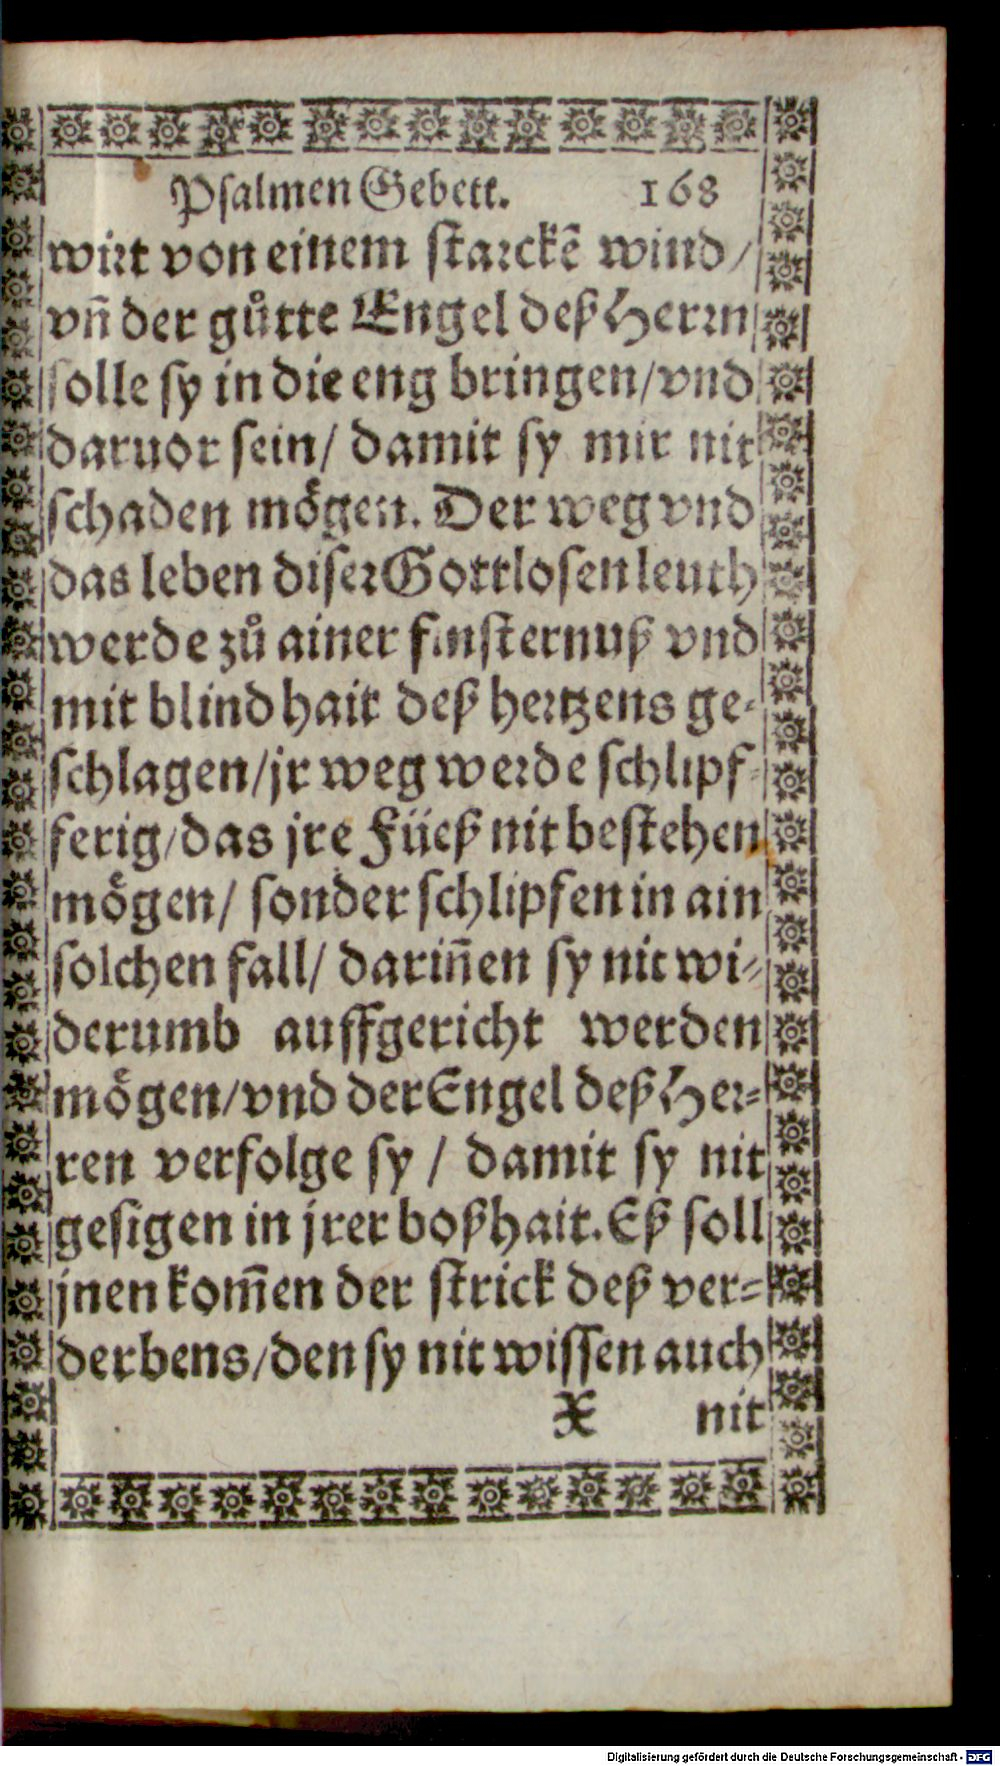 Psalmen Gebett. 168
wirt von einem starckē wind/
vñ der gůtte Engel deß Herrn
solle sy in die eng bringen/vnd
daruor sein/ damit sy mir nit
schaden mögen. Der weg vnd
das leben diser Gottlosen leuth
werde zů ainer finsternuß vnd
mit blindhait deß hertzens ge-
schlagen/jr weg werde schlipf-
ferig/das jre Füeß nit bestehen
mögen/ sonder schlipfen in ain
solchen fall/ dariñen sy nit wi-
derumb auffgericht werden
mögen/vnd der Engel deß Her-
ren verfolge sy / damit sy nit
gesigen in jrer boßhait. Eß soll
jnen kom̄en der strick deß ver-
derbens/den sy nit wissen auch
X nit
Digitalisierung gefördert durch die Deutsche Forschungsgemeinschaft - DFG